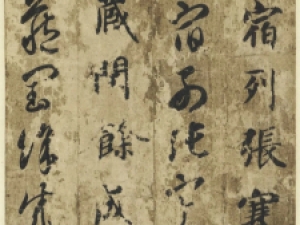 宿列張寒
宿列張寒
藏閏餘成
藏閏餘成